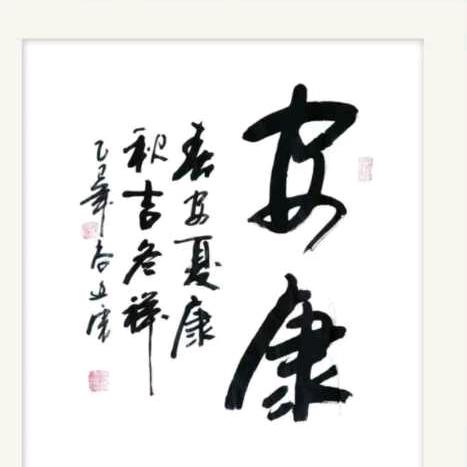 安康
春安夏康
秋吉冬祥
乙巳年